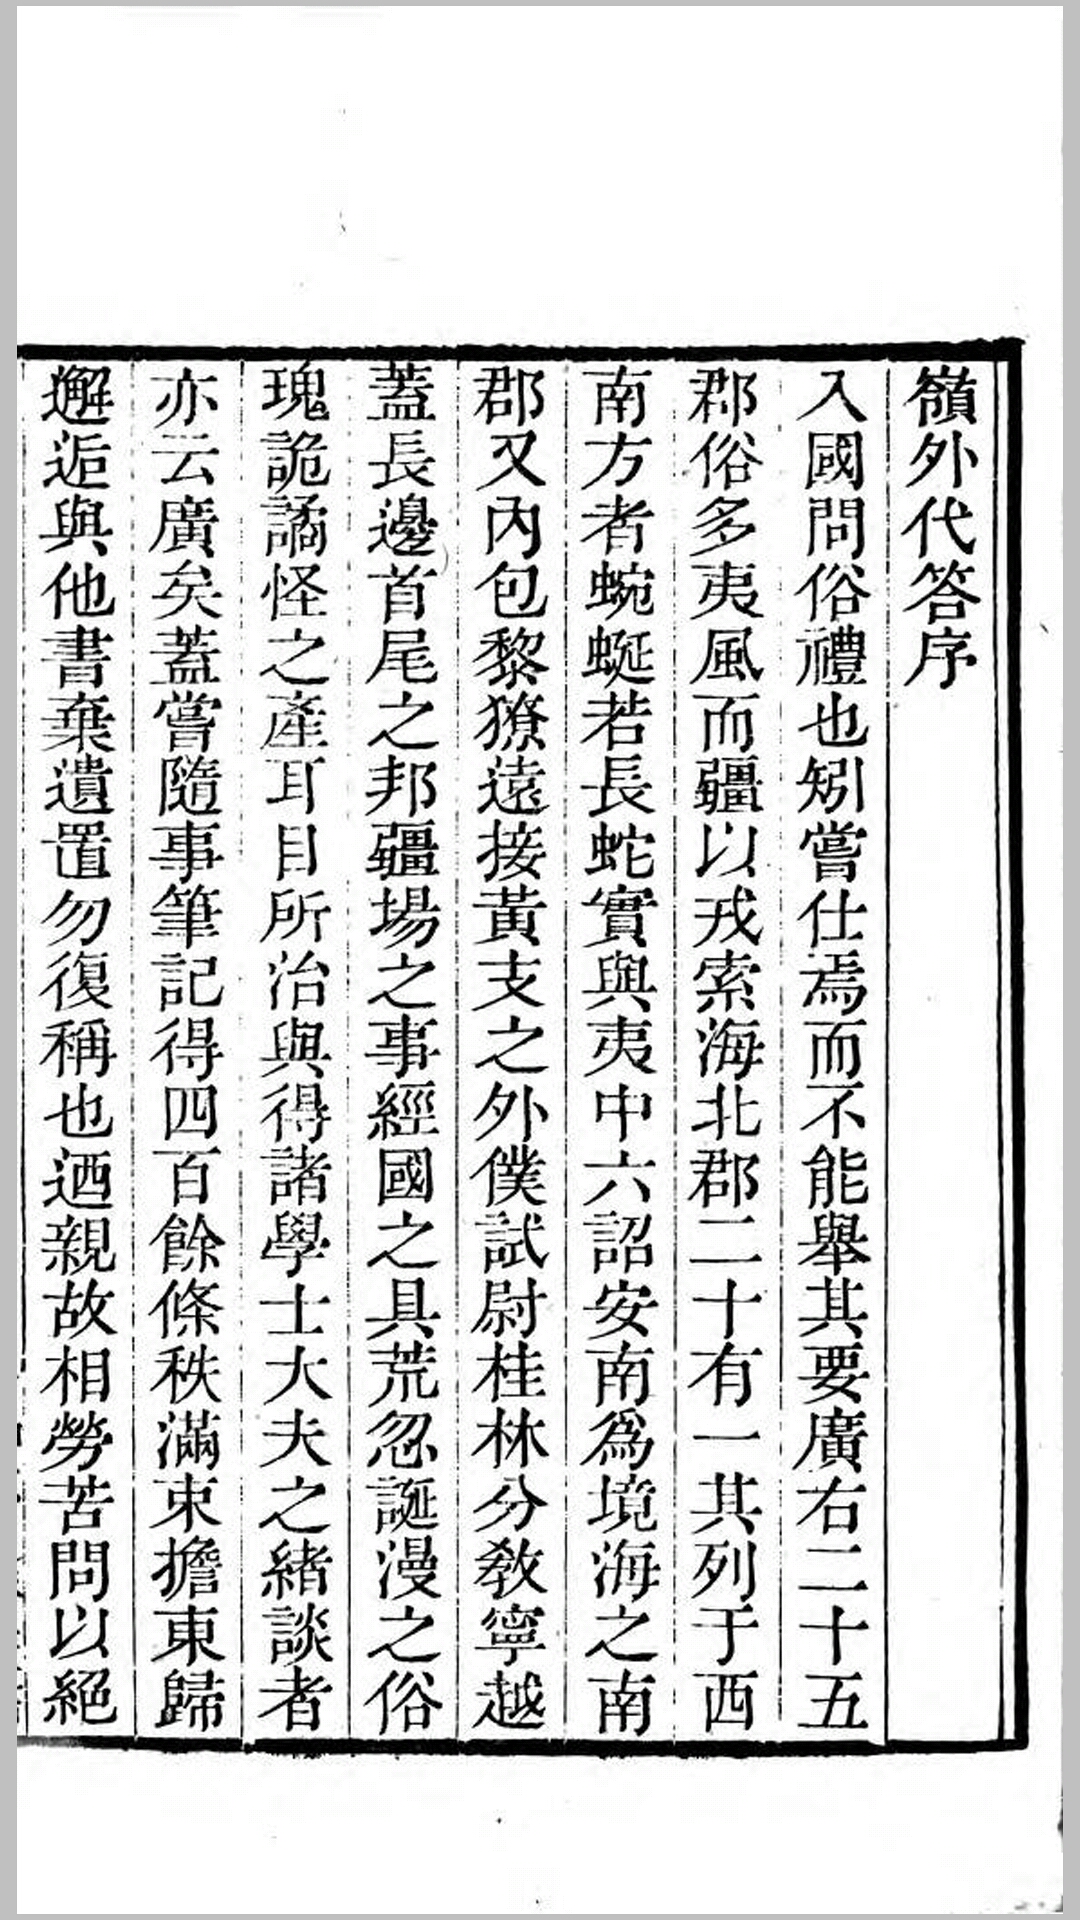 嶺外代答序
入國問俗禮也矧嘗仕焉而不能舉其要廣右二十五
郡俗多夷風而疆以戎索海北郡二十有一其列于西
南方者蜿蜒若長蛇實與夷中六詔安南為境海之南
郡又內包黎獠遠接黃支之外僕試尉桂林分敎寧越
蓋長邊首尾之邦疆場之事經國之具荒忽誕漫之俗
瑰詭譎怪之產耳目所治與得諸學士大夫之緒談者
亦云廣矣蓋嘗隨事筆記得四百餘條秩滿束擔東歸
邂逅與他書棄遺置勿復稱也迺親故相勞苦問以絕